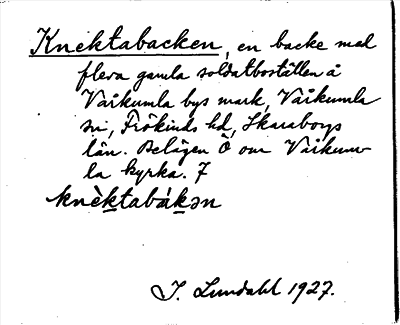 Knektabacken, en backe med
flera gamla soldatboställen å
Vårkumla bys mark, Vårkumla
sn, Frökinds hd, Skaraborgs
län. Belägen Ö om Vårkum-
la kyrka. 7
knὲktabákən
I. Lundahl 1927.